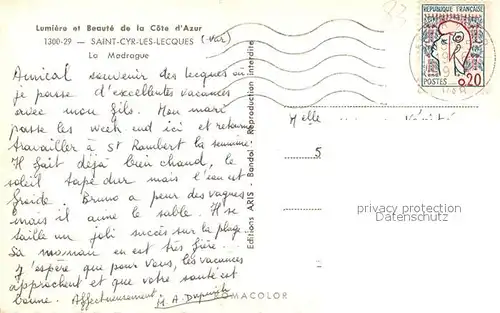 Lumière et Beauté de la Côte d'Azur
1300-29 — SAINT-CYR-LES-LECQUES (Var)
La Madrague
Amical souvenir des lecques où
je passe d'excellentes vacances
avec mon fils. Mon mari
passe les week end ici et retourne
travailler à St Rambert la semaine.
Il fait déjà bien chaud, le
soleil tape dur mais l'eau est
froide. Bruno a peur des vagues
mais il aime le sable. Il se
taille un joli succès sur la plage
Sa maman en est très fière...
J'espère que pour vous, les vacances
approchent et que votre santé est
bonne. Affectueusement M. A.
Editions ARIS - Bandol - Reproduction interdite
OMACOLOR
REPUBLIQUE FRANÇAISE
POSTES 0,20
Melle
5
privacy protection
Datenschutz